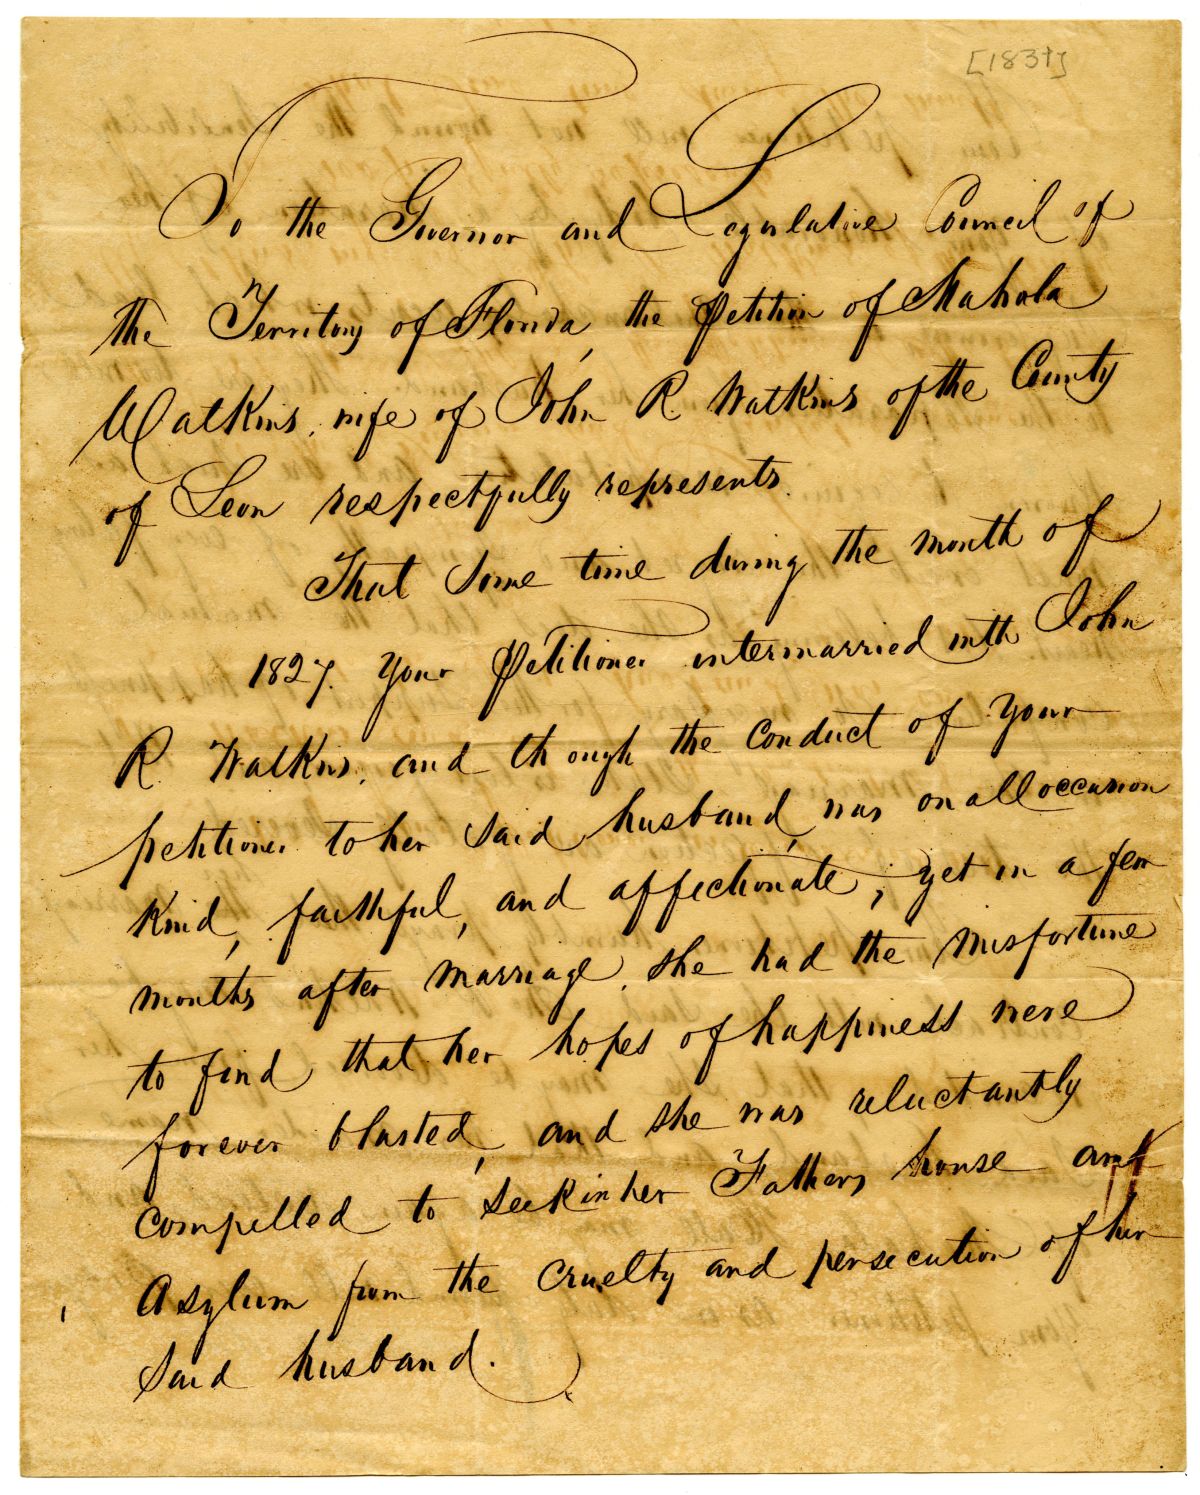 [183?]
To the Governor and Legislative Council of
the Territory of Florida, the petition of Mahala
Watkins, wife of John R Watkins of the County
of Leon respectfully represents.
That some time during the month of
1827. your petitioner intermarried with John
R. Watkins, and though the conduct of your
petitioner to her said husband, was on all occasion
kind, faithful, and affectionate; yet in a few
months after marriage, she had the misfortune
to find that her hopes of happiness were
forever blasted, and she was reluctantly
compelled to seek in her Fathers house an
Asylum from the cruelty and persecution of her
said husband.